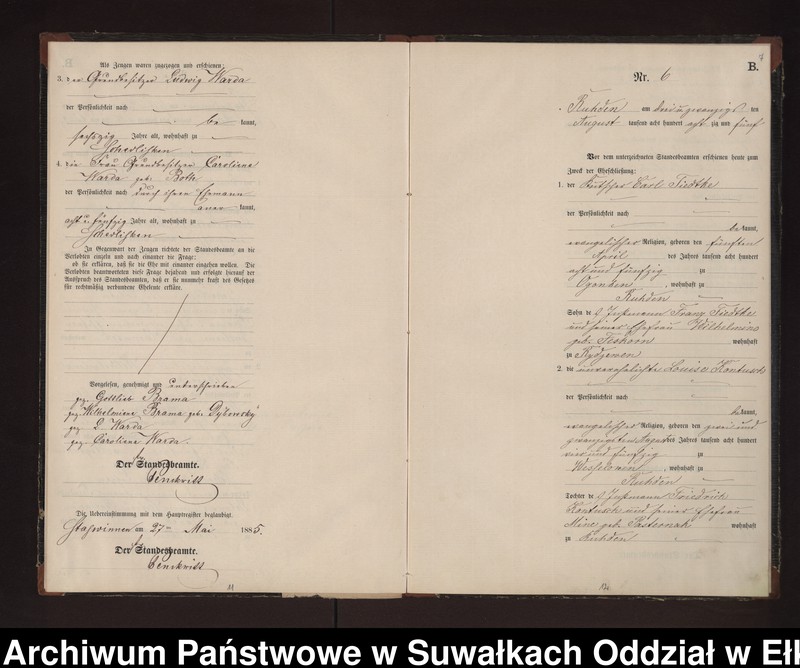 Als Zeugen waren zugezogen und erschienen:
3. der Grundbesitzer Ludwig Warda
der Persönlichkeit nach
be kannt,
sechszig Jahre alt, wohnhaft zu
Schedlisken
4. die Frau Grundbesitzer Caroline
Warda geb. Both
der Persönlichkeit nach durch ihren Ehemann
aner kannt,
acht u. fünfzig Jahre alt, wohnhaft zu
Schedlisken
In Gegenwart der Zeugen richtete der Standesbeamte an die
Verlobten einzeln und nach einander die Frage:
ob sie erklären, daß sie die Ehe mit einander eingehen wollen. Die
Verlobten beantworteten diese Frage bejahend und erfolgte hierauf der
Ausspruch des Standesbeamten, daß er sie nunmehr kraft des Gesetzes
für rechtmäßig verbundene Eheleute erkläre.
Vorgelesen, genehmigt und unterschrieben
gez. Gottlieb Brama
gez. Wilhelmine Brama geb. Dybowsky
gez. L. Warda
gez. Caroline Warda
Der Standesbeamte.
Die Uebereinstimmung mit dem Hauptregister beglaubigt.
Staswinnen am 27ten Mai 1885.
Der Standesbeamte.
11
B.
Nr. 6
Ruhden am dreiundzwanzigsten
August tausend acht hundert acht zig und fünf
Vor dem unterzeichneten Standesbeamten erschienen heute zum
Zweck der Eheschließung:
1. der Kutscher Carl Tiedtke
der Persönlichkeit nach
be kannt,
evangelischer Religion, geboren den fünften
April des Jahres tausend acht hundert
acht und fünfzig zu
Ogonken, wohnhaft zu
Ruhden
Sohn des Instmann Franz Tiedtke
und seiner Ehefrau Wilhelmine
geb. wohnhaft
zu Rydzewen
2. die unverehelichte Louise Kontusch
der Persönlichkeit nach
be kannt,
evangelischer Religion, geboren den zwei und
zwanzigsten August des Jahres tausend acht hundert
vier und fünfzig zu
Wessolowen, wohnhaft zu
Ruhden
Tochter des Instmann Friedrich
Kontusch und seiner Ehefrau
Mine geb. Pasternak wohnhaft
zu Ruhden
Archiwum Państwowe w Suwałkach Oddział w Eł